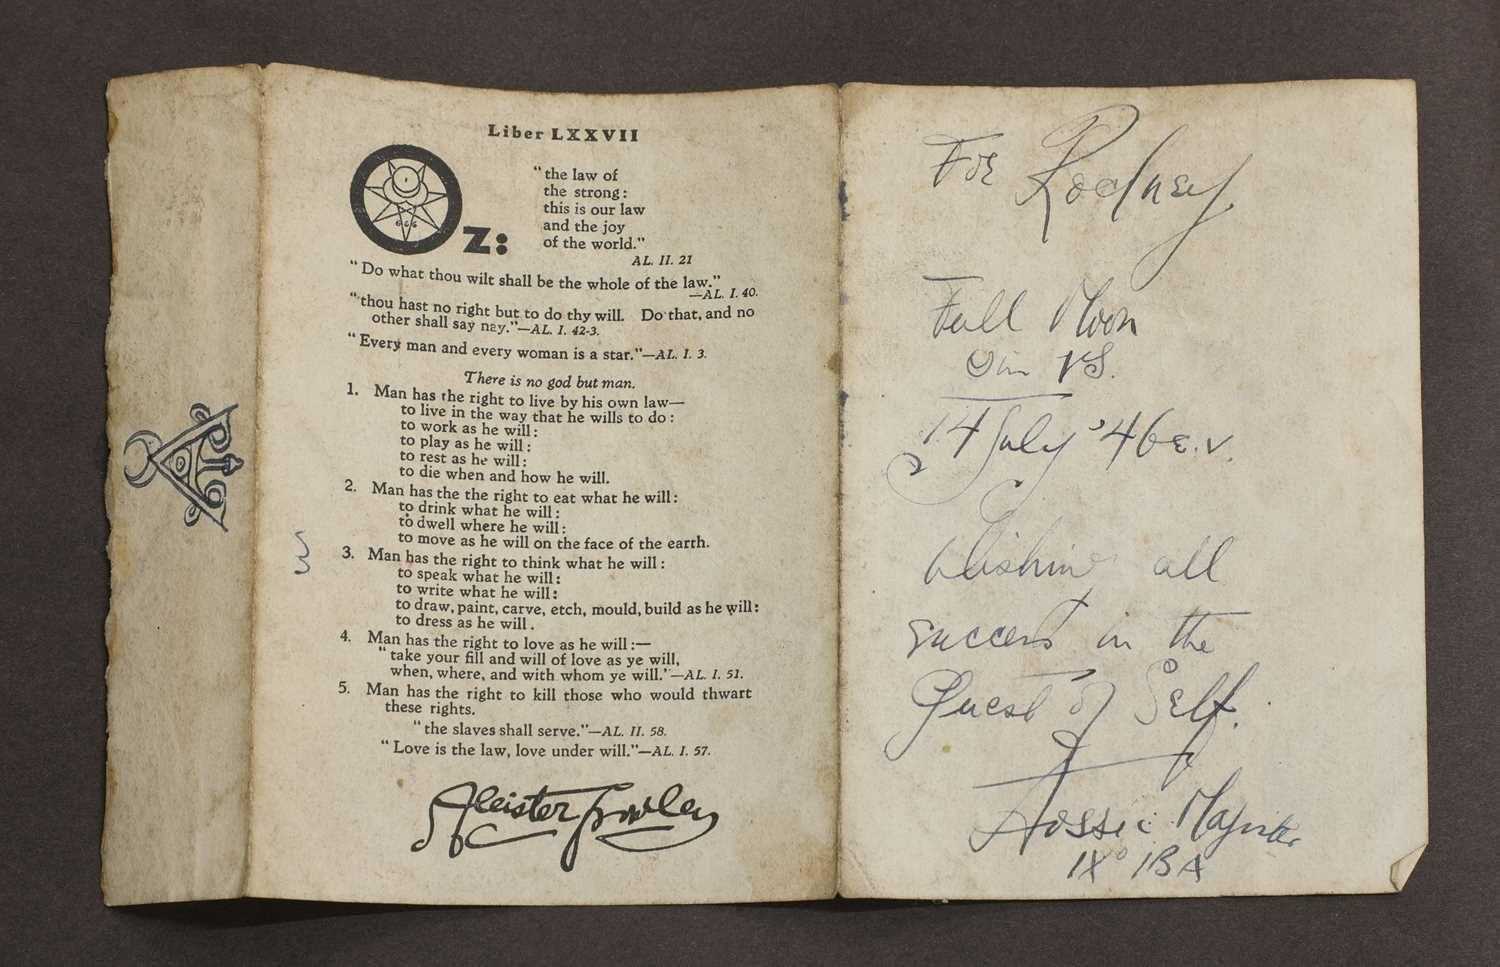 Liber LXXVII
666
Oz:
"the law of
the strong:
this is our law
and the joy
of the world."
AL. II. 21
"Do what thou wilt shall be the whole of the law."
—AL. I. 40.
"thou hast no right but to do thy will. Do that, and no
other shall say nay."—AL. I. 42-3.
"Every man and every woman is a star."—AL. I. 3.
There is no god but man.
1. Man has the right to live by his own law—
to live in the way that he wills to do:
to work as he will:
to play as he will:
to rest as he will:
to die when and how he will.
2. Man has the the right to eat what he will:
to drink what he will:
to dwell where he will:
to move as he will on the face of the earth.
3. Man has the right to think what he will:
to speak what he will:
to write what he will:
to draw, paint, carve, etch, mould, build as he will:
to dress as he will.
4. Man has the right to love as he will:—
"take your fill and will of love as ye will,
when, where, and with whom ye will."—AL. I. 51.
5. Man has the right to kill those who would thwart
these rights.
"the slaves shall serve."—AL. II. 58.
"Love is the law, love under will."—AL. I. 57.
Aleister Crowley
For Rodney
Full Moon
in VS.
14 July '46 e.v.
Wishing all
success in the
Quest of Self.
Aossic Magister
IX° IBA